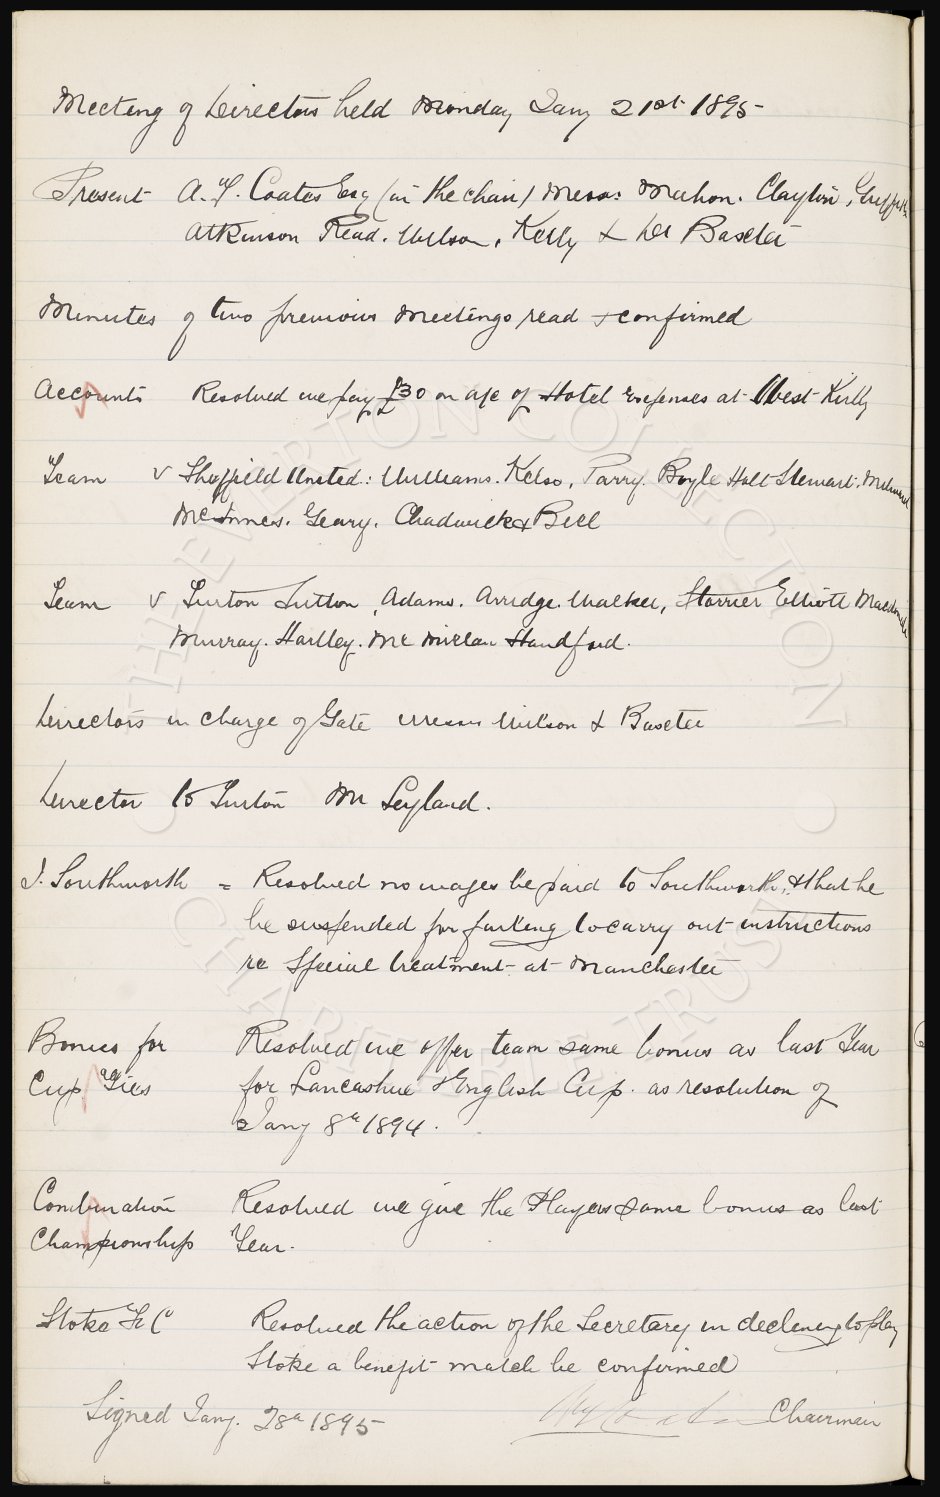 Meeting of Directors held Monday Jany 21st 1895
Present A. T. Coates Esq (in the chair) Messrs Mahon. Clayton, Griffiths
Atkinson Read. Wilson, Kelly & Dr Baxter
Minutes of two previous Meetings read & confirmed
Accounts Resolved we pay £30 on a/c of Hotel Expenses at West Kirby
Team v Sheffield United: Williams. Kelso, Parry. Boyle Holt Stewart. Milward
McInnes. Geary. Chadwick & Bell
Team v Turton Sutton, Adams. Arridge. Walker, Storrier Elliott
Murray. Hartley. McMillan Handford.
Directors in charge of Gate Messrs Wilson & Baxter
Director to Turton Mr Leyland.
J. Southworth = Resolved no wages be paid to Southworth, & that he
be suspended for failing to carry out instructions
re special treatment at Manchester
Bonus for Resolved we offer team same bonus as last Year
Cup Ties for Lancashire & English Cup. as resolution of
Jany 8th 1894.
Combination Resolved we give the Players same bonus as last
Championship Year.
Stoke F C Resolved the action of the Secretary in declening to play
Stoke a benefit match be confirmed
Signed Jany. 28th 1895 Chairman
THE EVERTON COLLECTION
CHARITABLE TRUST